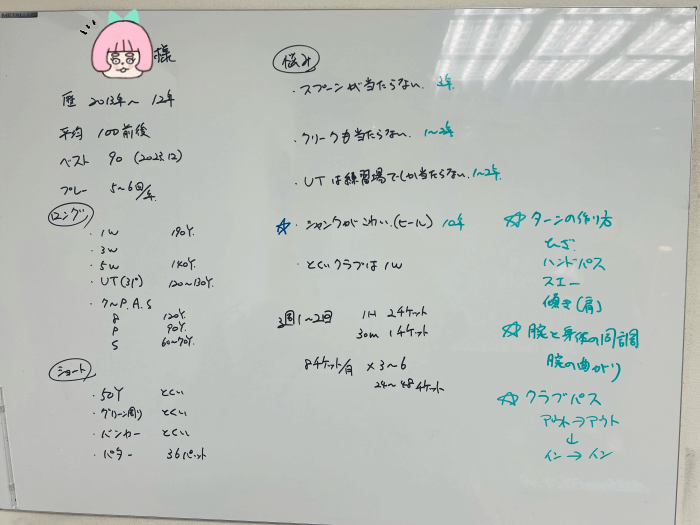 様
歴 2013年〜 12年
平均 100前後
ベスト 90 (2023.12)
プレー 5〜6回/年
ロング
・1W 190Y.
・3W
・5W 140Y.
・UT(31°) 120〜130Y.
・7〜P.A.S
8 120Y.
P 90Y.
S 60〜70Y.
ショート
・50Y とくい
・グリーン周り とくい
・バンカー とくい
・パター 36パット
悩み
・スプーンが当たらない. 3年.
・クリークも当たらない. 1〜2年
・UTは練習場でしか当たらない. 1〜2年.
☆・シャンクがこわい.(ヒール) 10年
・とくいクラブは1W
週1〜2回 1H 2チケット
30m 1チケット
8チケット/月 ×3〜6
24〜48チケット
☆ターンの作り方
ひざ
ハンドパス
スエー
傾き(肩)
☆腕と身体の同調
腕の曲がり
☆クラブパス
アウト→アウト
↓
イン→イン